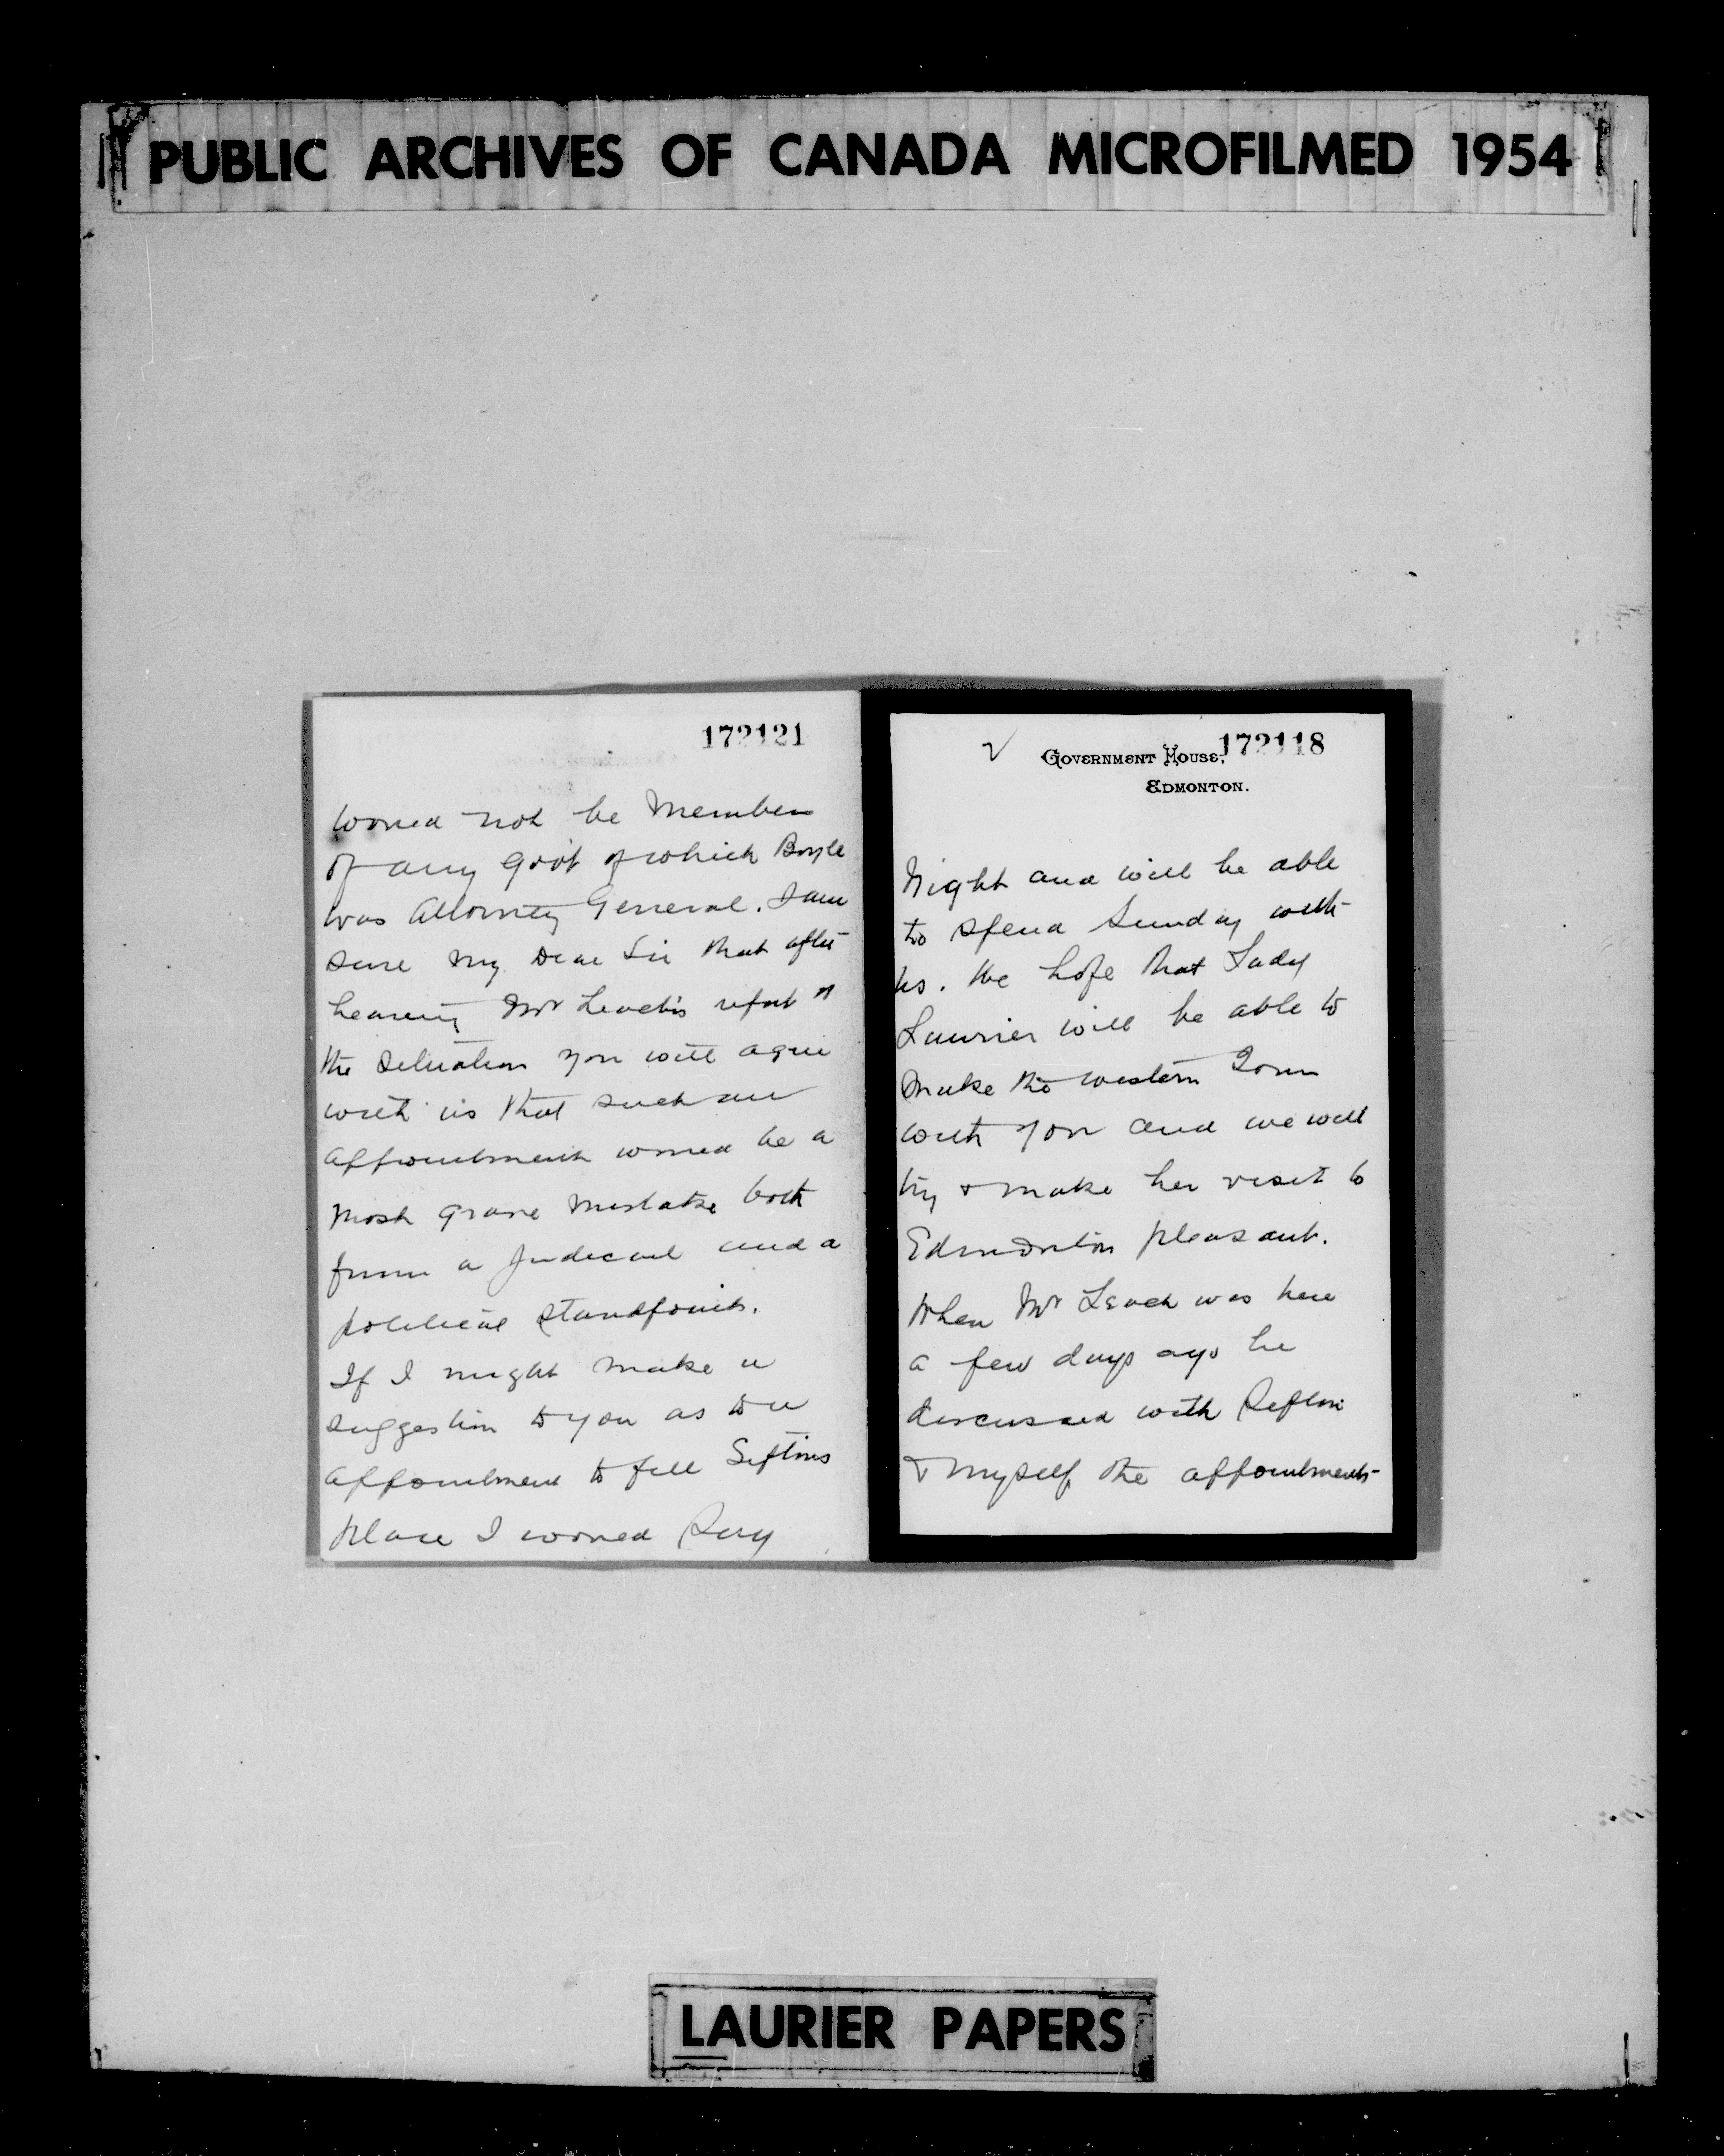 PUBLIC ARCHIVES OF CANADA MICROFILMED 1954
172121
would not be Member
of any Gov't of which Boyle
was Attorney General. I am
sure My Dear Sir that after
hearing Mr Leach's report of
the situation you will agree
with us that such an
appointment would be a
Most grave mistake both
from a Judicial and a
political standpoint.
If I might make a
suggestion to you as to a
appointment to fill Siftons
place I would say
2
172118
GOVERNMENT HOUSE,
EDMONTON.
Night and will be able
to spend Sunday with
us. We hope that Lady
Laurier will be able to
Make the western Tour
with you and we will
try & make her visit to
Edmonton pleasant.
When Mr Leach was here
a few days ago he
discussed with Sifton
& Myself the appointments
LAURIER PAPERS